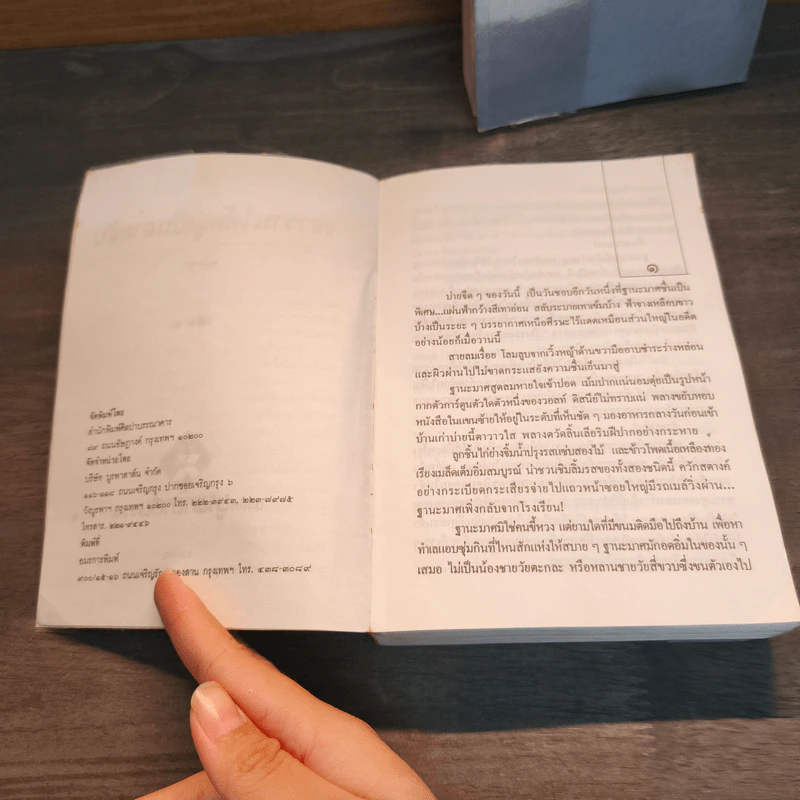 จัดพิมพ์โดย
สำนักพิมพ์ศิลปาบรรณาคาร
๗๙ ถนนอัษฎางค์ กรุงเทพฯ ๑๐๒๐๐
จัดจำหน่ายโดย
บริษัท บูรพาสาส์น จำกัด
๑๑๖-๑๑๘ ถนนเจริญกรุง ปากซอยเจริญกรุง ๖
วังบูรพาฯ กรุงเทพฯ ๑๐๒๐๐ โทร. ๒๒๒-๓๙๕๓, ๒๒๓-๗๙๗๕
โทรสาร. ๒๒๑-๙๕๔๖
พิมพ์ที่
อมรการพิมพ์
๙๐๐/๑๕-๑๖ ถนนเจริญรัถ กรุงเทพฯ โทร. ๔๓๘-๓๐๘๙
๑
บ่ายจืด ๆ ของวันนี้ เป็นวันชอบอีกวันหนึ่งที่ฐานะมาศชื่นเป็น
พิเศษ...แผ่นฟ้ากว้างสีเทาอ่อน สลับระบายเทาเข้มบ้าง ฟ้าจางเหลือบขาว
บ้างเป็นระยะ ๆ บรรยากาศเหนือศีรษะไร้แดดเหมือนส่วนใหญ่ในอดีต
อย่างน้อยก็เมื่อวานนี้
สายลมเรื่อย โลมลูบจากเวิ้งหญ้าด้านขวามืออาบซ่าระร่างหล่อน
และผิวผ่านไปไม่ขาดกระแสยังความชื่นเย็นมาสู่
ฐานะมาศสูดลมหายใจเข้าปอด เม้มปากแน่นอมตุ่ยเป็นรูปหน้า
กากตัวการ์ตูนตัวใดตัวหนึ่งของวอลท์ ดิสนีย์ไม่ทราบแน่ พลางขยับหอบ
หนังสือในแขนซ้ายให้อยู่ในระดับที่เห็นชัด ๆ มองอาหารกลางวันก่อนเข้า
บ้านเก่าบ่ายนี้ตาวาวใส พลางตวัดลิ้นเลียริมฝีปากอย่างกระหาย
ลูกชิ้นไก่ย่างจิ้มน้ำปรุงรสแซ่บสองไม้ และข้าวโพดเนื้อเหลืองทอง
เรียงเมล็ดเต็มอิ่มสมบูรณ์ น่าชวนชิมลิ้มรสของทั้งสองชนิดนี้ ควักสตางค์
อย่างกระเบียดกระเสียรจ่ายไปแถวหน้าซอยใหญ่มีรถเมล์วิ่งผ่าน...
ฐานะมาศเพิ่งกลับจากโรงเรียน!
ฐานะมาศมิใช่คนขี้หวง แต่ยามใดที่มีขนมติดมือไปถึงบ้าน เพื่อหา
ทำเลแอบซุ่มกินที่ไหนสักแห่งให้สบาย ๆ ฐานะมาศมักอดอิ่มในของนั้น ๆ
เสมอ ไม่เป็นน้องชายวัยตะกละ หรือหลานชายวัยสี่ขวบซึ่งขนตัวเองไป